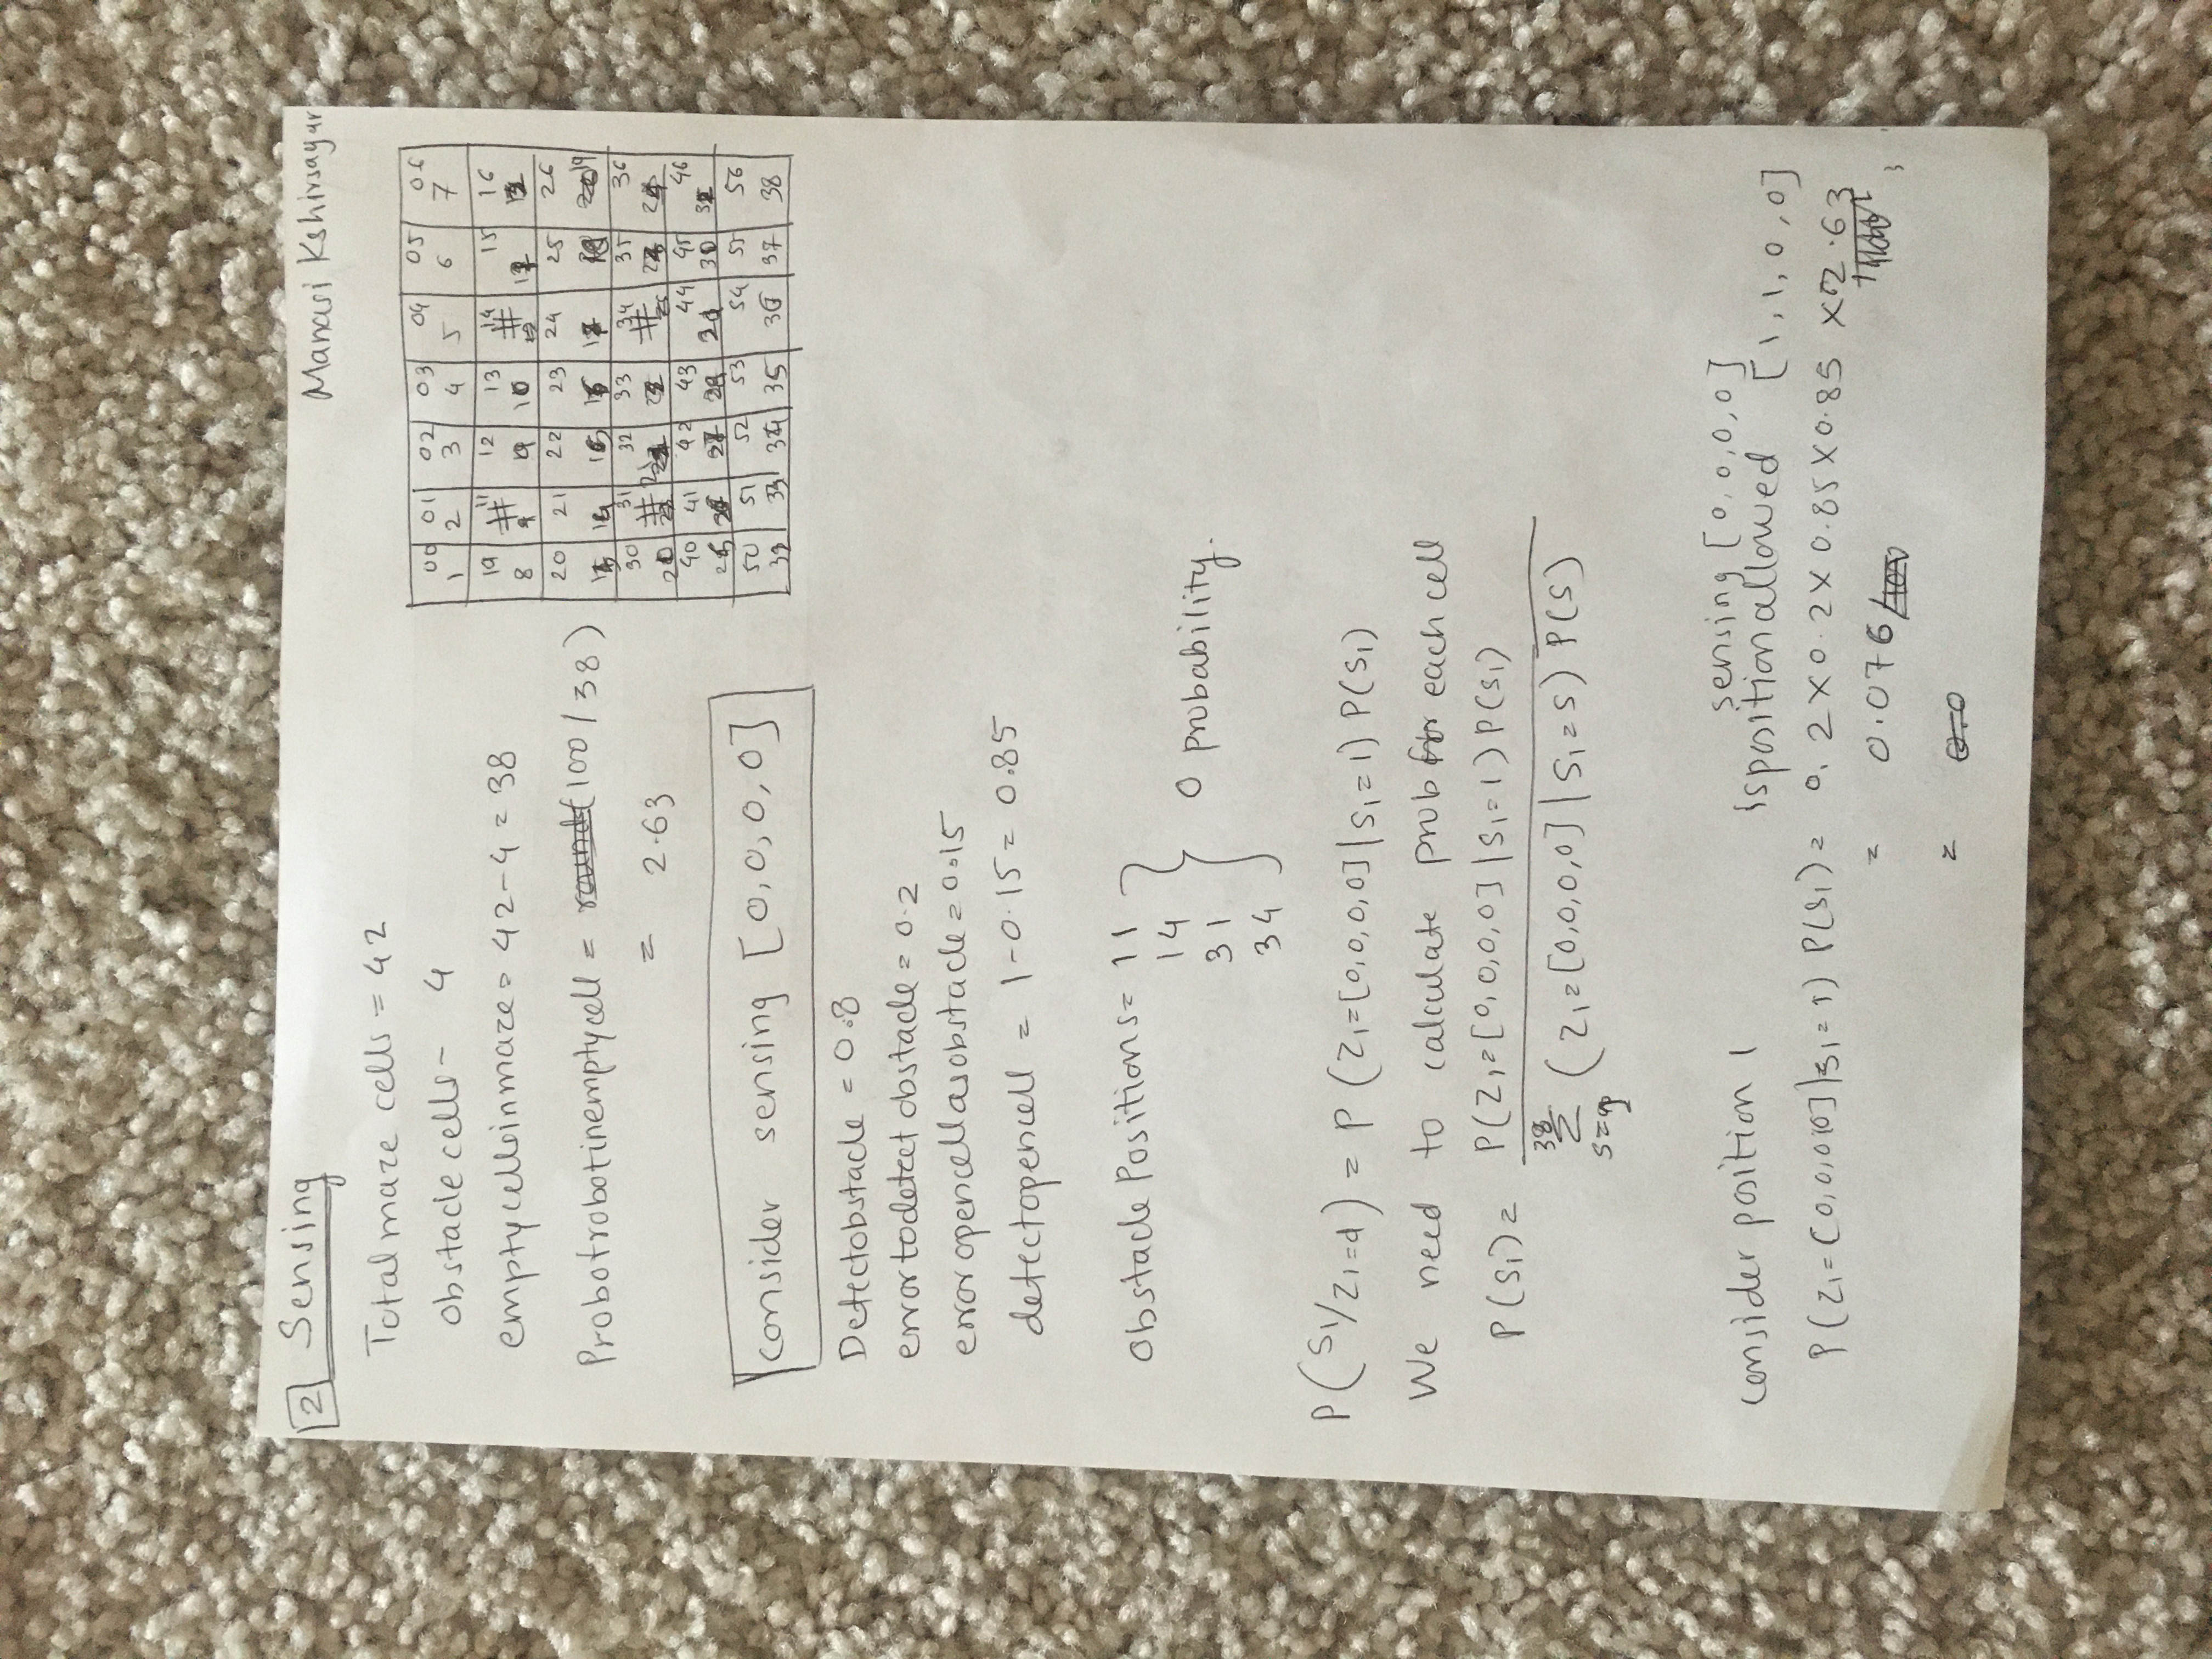 2 Sensing
Manasi Kshirsagar
Total maze cells = 42
obstacle cells - 4
empty cells in maze = 42-4 = 38
Prob of robot in empty cell = (100/38)
= 2.63
00 01 02 03 04 05 06
1 2 3 4 5 6 7
19 # 11 12 13 # 14 15 16
8 9 10
20 21 22 23 24 25 26
19
30 # 31 32 33 # 34 35 36
40 41 42 43 44 45 46
50 51 52 53 54 55 56
33 34 35 36 37 38
consider sensing [0,0,0,0]
Detect obstacle = 0.8
error to detect obstacle = 0.2
error open cell as obstacle = 0.15
detect open cell = 1-0.15 = 0.85
Obstacle Positions = 11
14
31
34
0 probability.
P(S1/Z1=d) = P(Z1=[0,0,0,0]|S1=1) P(S1)
We need to calculate prob for each cell
P(S1) = P(Z1=[0,0,0,0]|S1=1) P(S1)
38
Σ (Z1=[0,0,0,0]|S1=S) P(S)
S=
consider position 1
sensing [0,0,0,0]
is position allowed [1,1,0,0]
P(Z1=[0,0,0,0]|S1=1) P(S1) = 0.2×0.2×0.85×0.85 ×2.63
= 0.076
= 0.0